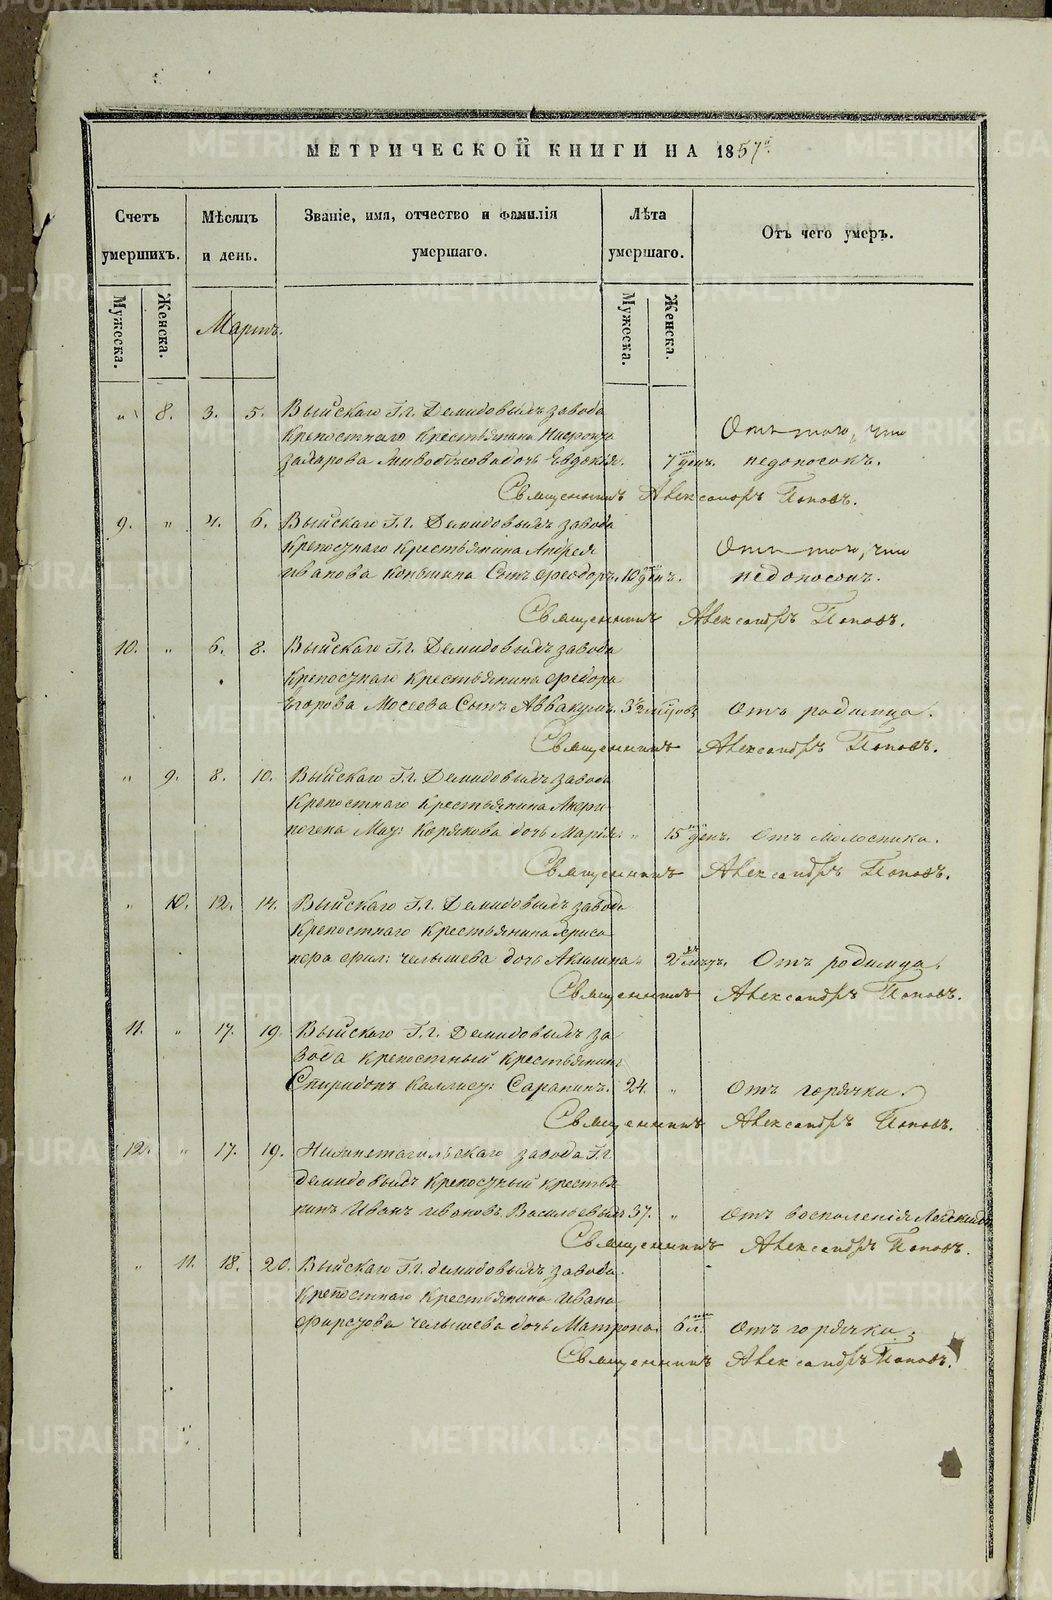 МЕТРИЧЕСКОЙ КНИГИ НА 1857й
Счетъ умершихъ.
Мѣсяцъ и день.
Званіе, имя, отчество и фамилія умершаго.
Лѣта умершаго.
Отъ чего умеръ.
Мужеска.
Женска.
Мартъ.
Мужеска.
Женска.
" 8. 3. 5. Выйскаго Г.г. Демидовыхъ завода
крепостнаго крестьянина
Захарова дочь Евдокія. 7 ден. Отъ того, что недоносокъ.
Священникъ Александръ Поповъ.
9. " 4. 6. Выйскаго Г.г. Демидовыхъ завода
крепостнаго крестьянина Андрея
Иванова Коньшина Сынъ Феодоръ. 10 ден. Отъ того, что недоносокъ.
Священникъ Александръ Поповъ.
10. " 6. 8. Выйскаго Г.г. Демидовыхъ завода
крепостнаго крестьянина Федора
Егорова Мосеева Сынъ Аввакумъ. 3х мѣсцовъ Отъ родимца.
Священникъ Александръ Поповъ.
" 9. 8. 10. Выйскаго Г.г. Демидовыхъ завода
Крепостнаго крестьянина
Корякова дочь Марія. " 15 ден. Отъ молосника.
Священникъ Александръ Поповъ.
" 10. 12. 14. Выйскаго Г.г. Демидовыхъ завода
крепостнаго крестьянина Хриса
нфа фил: Челышева дочь Акилина. 2 Отъ родимца.
Священникъ Александръ Поповъ.
11. " 17. 19. Выйскаго Г.г. Демидовыхъ за
вода крепостный крестьянинъ
Спиридонъ Каллист: Сарапинъ. 24. " Отъ горячки.
Священникъ Александръ Поповъ.
12. " 17. 19. Нижнетагильскаго завода Г.г.
Демидовыхъ крепостный крестья
нинъ Иванъ Ивановъ Васильевыхъ 37. " Отъ воспаленія Легкихъ
Священникъ Александръ Поповъ.
" 11. 18. 20. Выйскаго Г.г. Демидовыхъ завода
крепостнаго крестьянина Ивана
Фирсова Челышева дочь Матрона. 6 л. Отъ горячки.
Священникъ Александръ Поповъ.
METRIKI.GASO-URAL.RU